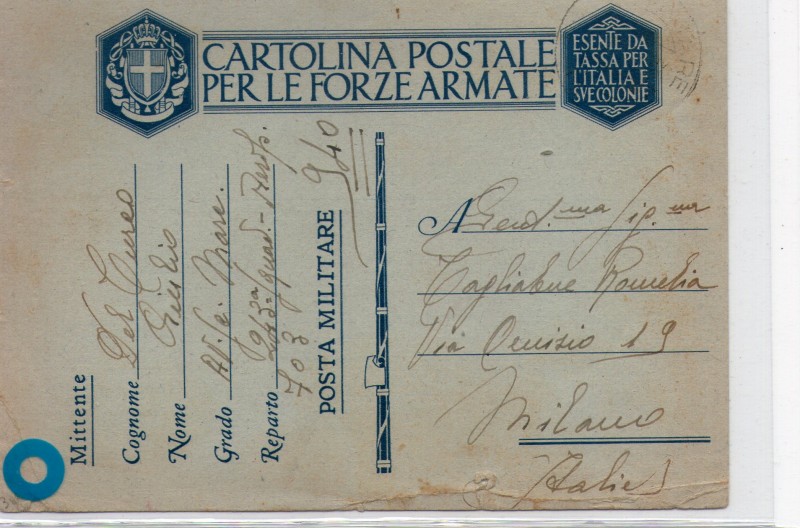 CARTOLINA POSTALE
PER LE FORZE ARMATE
ESENTE DA
TASSA PER
L'ITALIA E
SVE COLONIE
Mittente
Cognome Del Curco
Nome Giulio
Grado Av. Sc. Mare.
Reparto 243ª Squad. - Aerop.
703
POSTA MILITARE 940
A Gent.ma Sig.na
Tagliabue Romelia
Via Cenisio 19
Milano
(Italie)